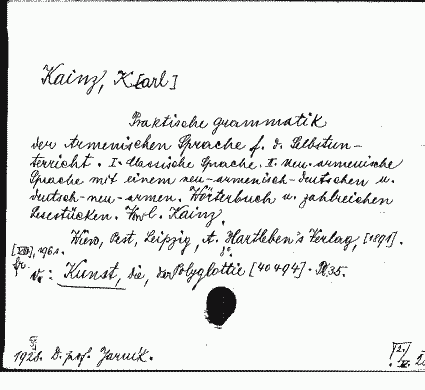 Kainz, K[arl]
Praktische grammatik
der Armenischen Sprache f. d. Selbstun-
terricht. I. Klassische Sprache. II. Neu-armenische
Sprache mit einem neu-armenisch-deutschen u.
deutsch-neu-armen. Wörterbuch u. zahlreichen
Lesestücken. Kainz.
Wien, Pest, Leipzig, A. Hartleben's Verlag, [1891].
196 s.
Kunst, die, der Polyglottie [40494]. 35.
1928. D. prof. Jarník.